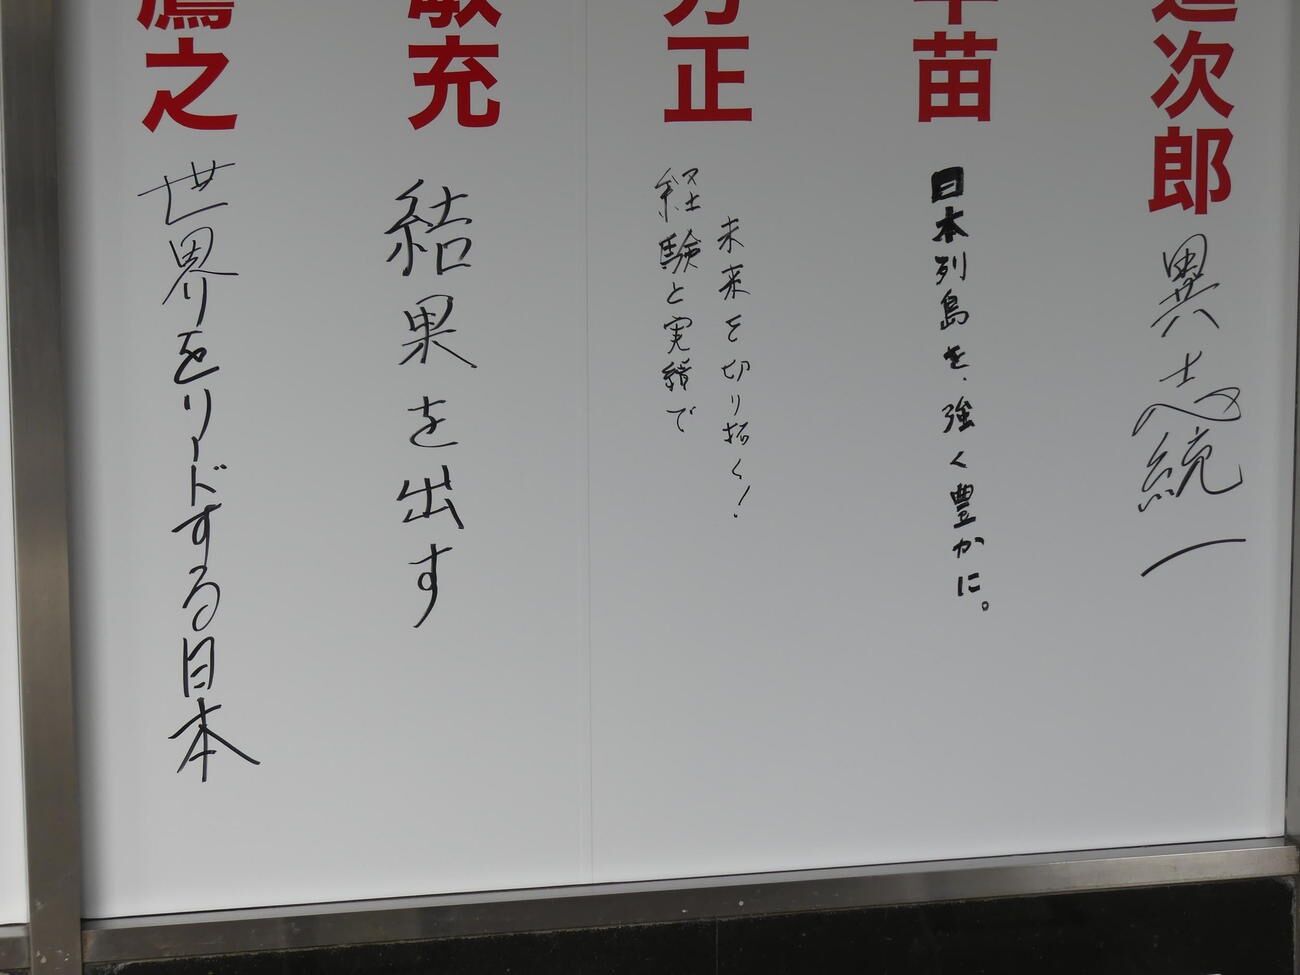 進次郎
異志統一
早苗
日本列島を、強く豊かに。
芳正
経験と実績で
未来を切り拓く！
敏充
結果を出す
鷹之
世界をリードする日本